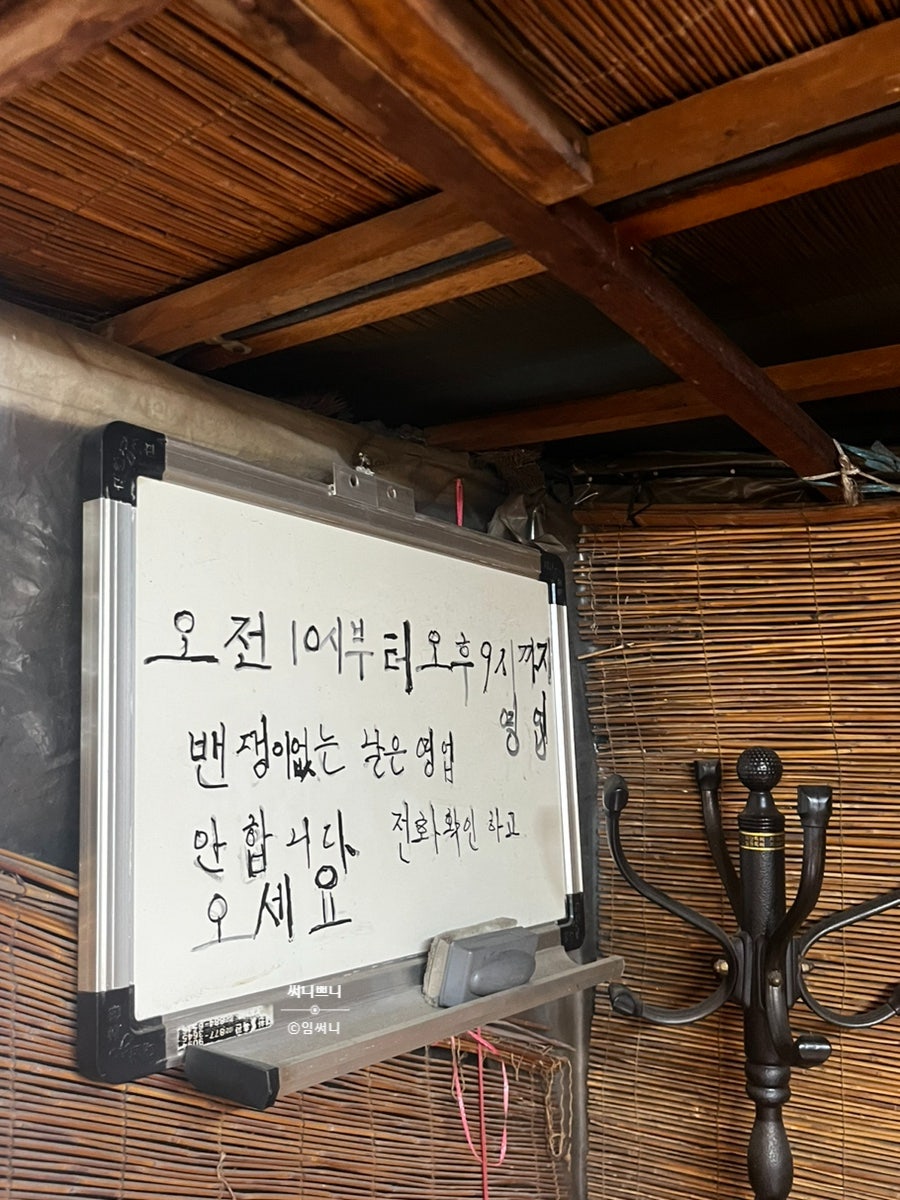 오전 10시부터 오후 9시까지
영업
밴쟁이없는 날은 영업
안합니다 전화확인 하고
오세요
써니쁘니
©임써니